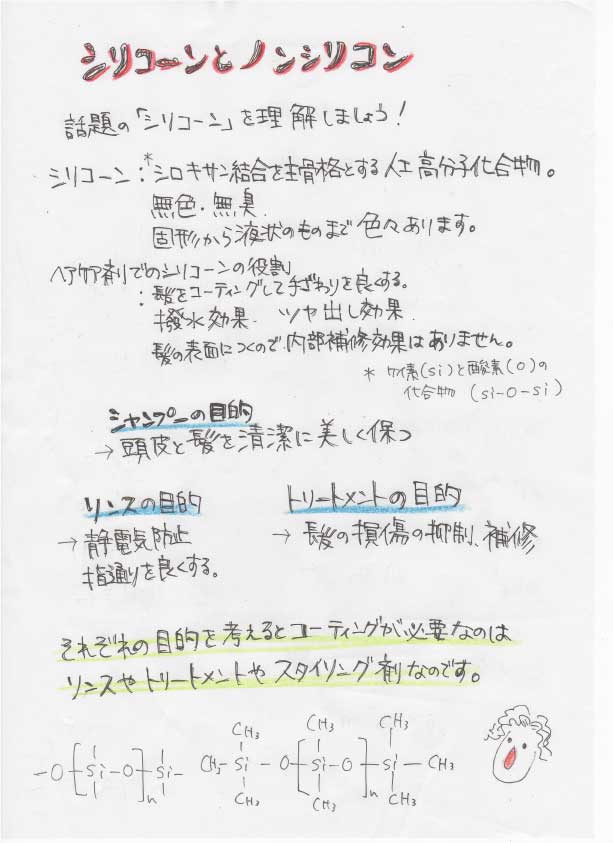 シリコーンとノンシリコン
話題の「シリコーン」を理解しましょう!
シリコーン:*シロキサン結合を主骨格とする人工高分子化合物。
無色・無臭
固形から液状のものまで色々あります。
ヘアケア剤でのシリコーンの役割
:髪をコーティングして手ざわりを良くする。
撥水効果. ツヤ出し効果.
髪の表面につくので、内部補修効果はありません。
* ケイ素(si)と酸素(O)の
化合物 (si-O-si)
シャンプーの目的
→頭皮と髪を清潔に美しく保つ
リンスの目的
→静電気防止
指通りを良くする。
トリートメントの目的
→ 髪の損傷の抑制、補修
それぞれの目的を考えるとコーティングが必要なのは
リンスやトリートメントやスタイリング剤なのです。
-O-[Si-O]n-Si-
CH3 CH3 CH3
CH3-Si-O-[Si-O]n-Si-CH3
CH3 CH3 CH3